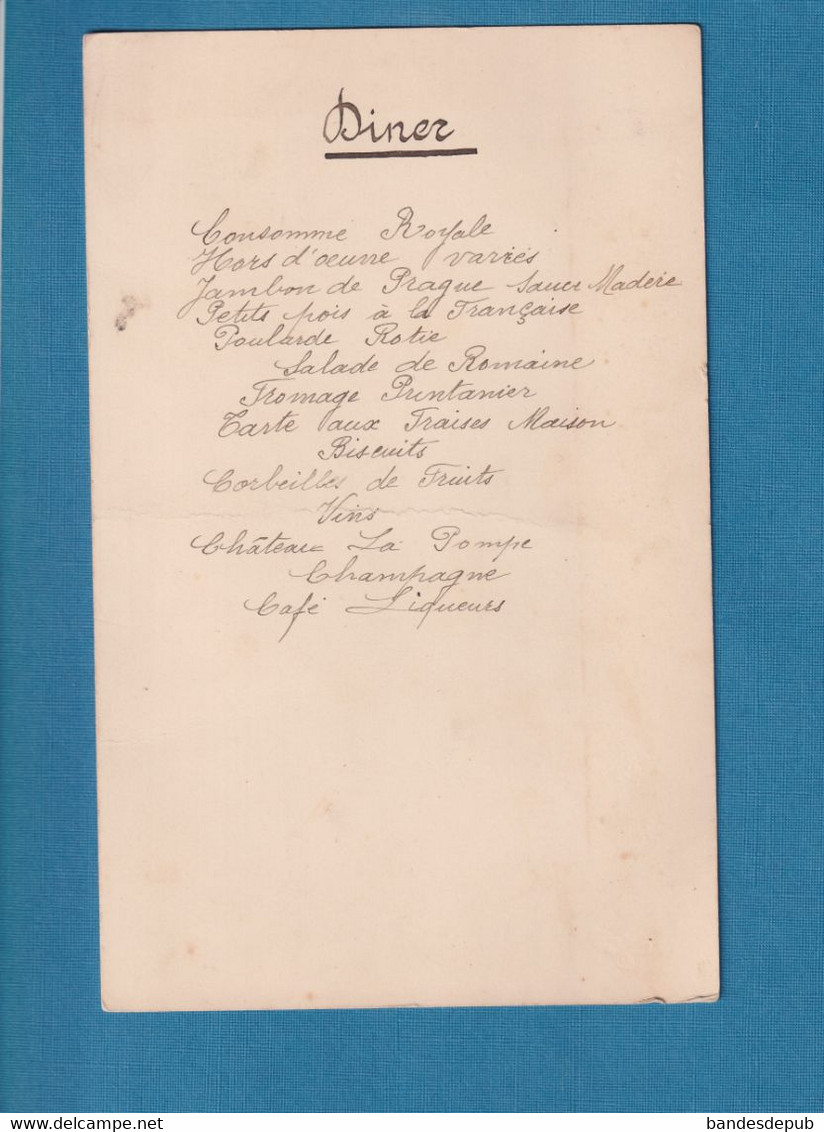 Diner
Consomme Royale
Hors d'oeuvre variés
Jambon de Prague Sauce Madère
Petits pois à la Française
Poularde Rotie
Salade de Romaine
Fromage Printanier
Tarte aux Fraises Maison
Biscuits
Corbeilles de Fruits
Vins
Château La Pompe
Champagne
Café Liqueurs
DELCAMPE.NET
bandesdepub